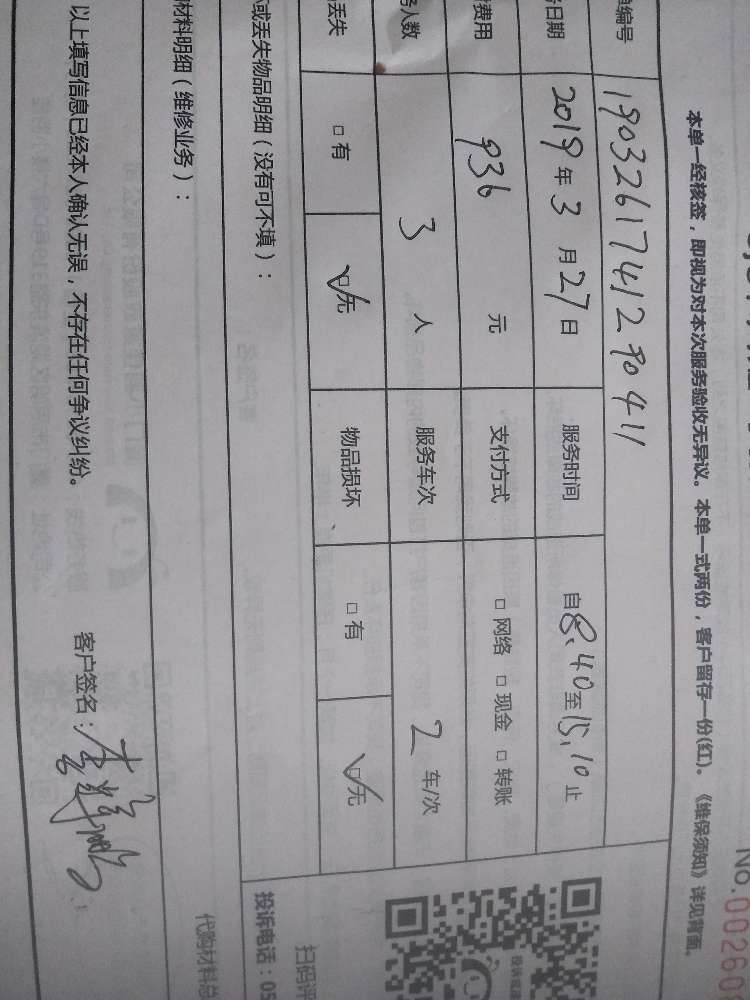 No.00260
本单一经核签，即视为对本次服务验收无异议。本单一式两份，客户留存一份(红)。《维保须知》详见背面。
单编号 1903261741290411
日期 2019年3月27日 服务时间 自8.40至15.10止
费用 936 元 支付方式 □网络 □现金 □转账
人数 3 人 服务车次 2 车/次
丢失 □有 ☑无 物品损坏 □有 ☑无
或丢失物品明细（没有可不填）：
投诉电话：05
扫码评
材料明细（维修业务）：
代购材料总
以上填写信息已经本人确认无误，不存在任何争议纠纷。 客户签名：